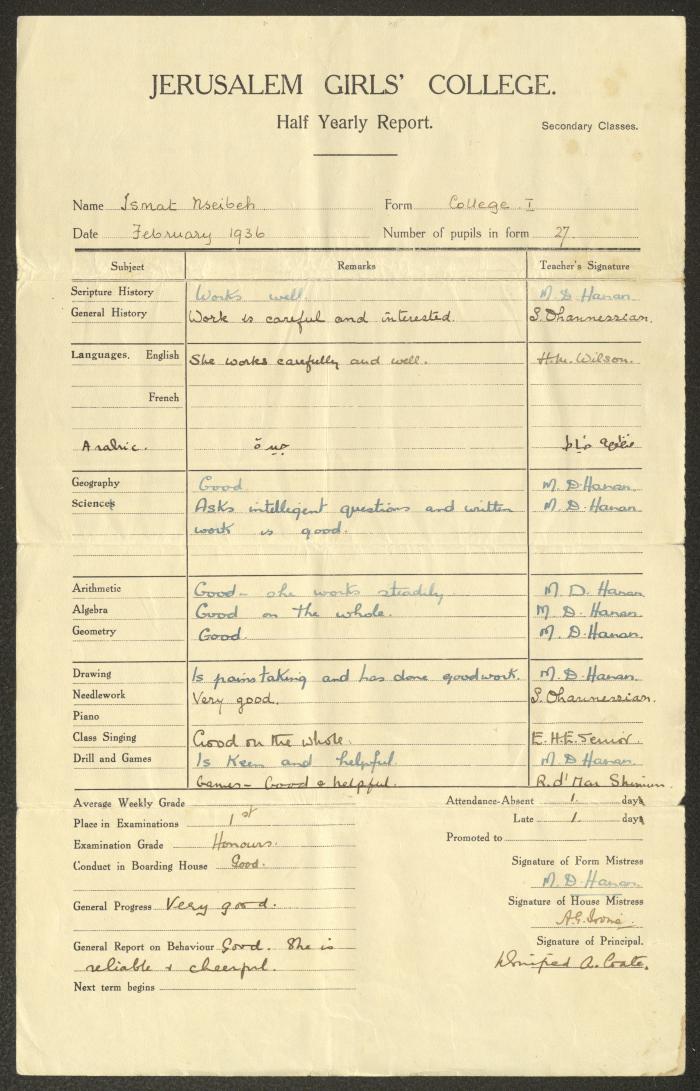 JERUSALEM GIRLS' COLLEGE.
Half Yearly Report.
Secondary Classes.
Name Ismat Nseibeh Form College I
Date February 1936 Number of pupils in form 27
Subject Remarks Teacher's Signature
Scripture History Works well. M. D Hanan.
General History Work is careful and interested. S. Ohannessian.
Languages. English She works carefully and well. H.M. Wilson.
French
Arabic. جيدة
Geography Good M. D. Hanan.
Sciences Asks intelligent questions and written M. D. Hanan.
work is good.
Arithmetic Good - she works steadily M. D. Hanan.
Algebra Good on the whole. M. D. Hanan.
Geometry Good. M. D. Hanan.
Drawing Is painstaking and has done good work. M. D. Hanan.
Needlework Very good. S. Ohannessian.
Piano
Class Singing Good on the whole. E.H.E. Senior.
Drill and Games Is Keen and helpful. M D Hanan.
Games - Good & helpful. R. d'Mar
Average Weekly Grade Attendance-Absent 1. days
Place in Examinations 1st Late 1. days
Examination Grade Honours. Promoted to
Conduct in Boarding House Good. Signature of Form Mistress
M. D. Hanan
General Progress Very good. Signature of House Mistress
A.G.
General Report on Behaviour Good. She is Signature of Principal.
reliable & cheerful. Winifred A. Coate.
Next term begins